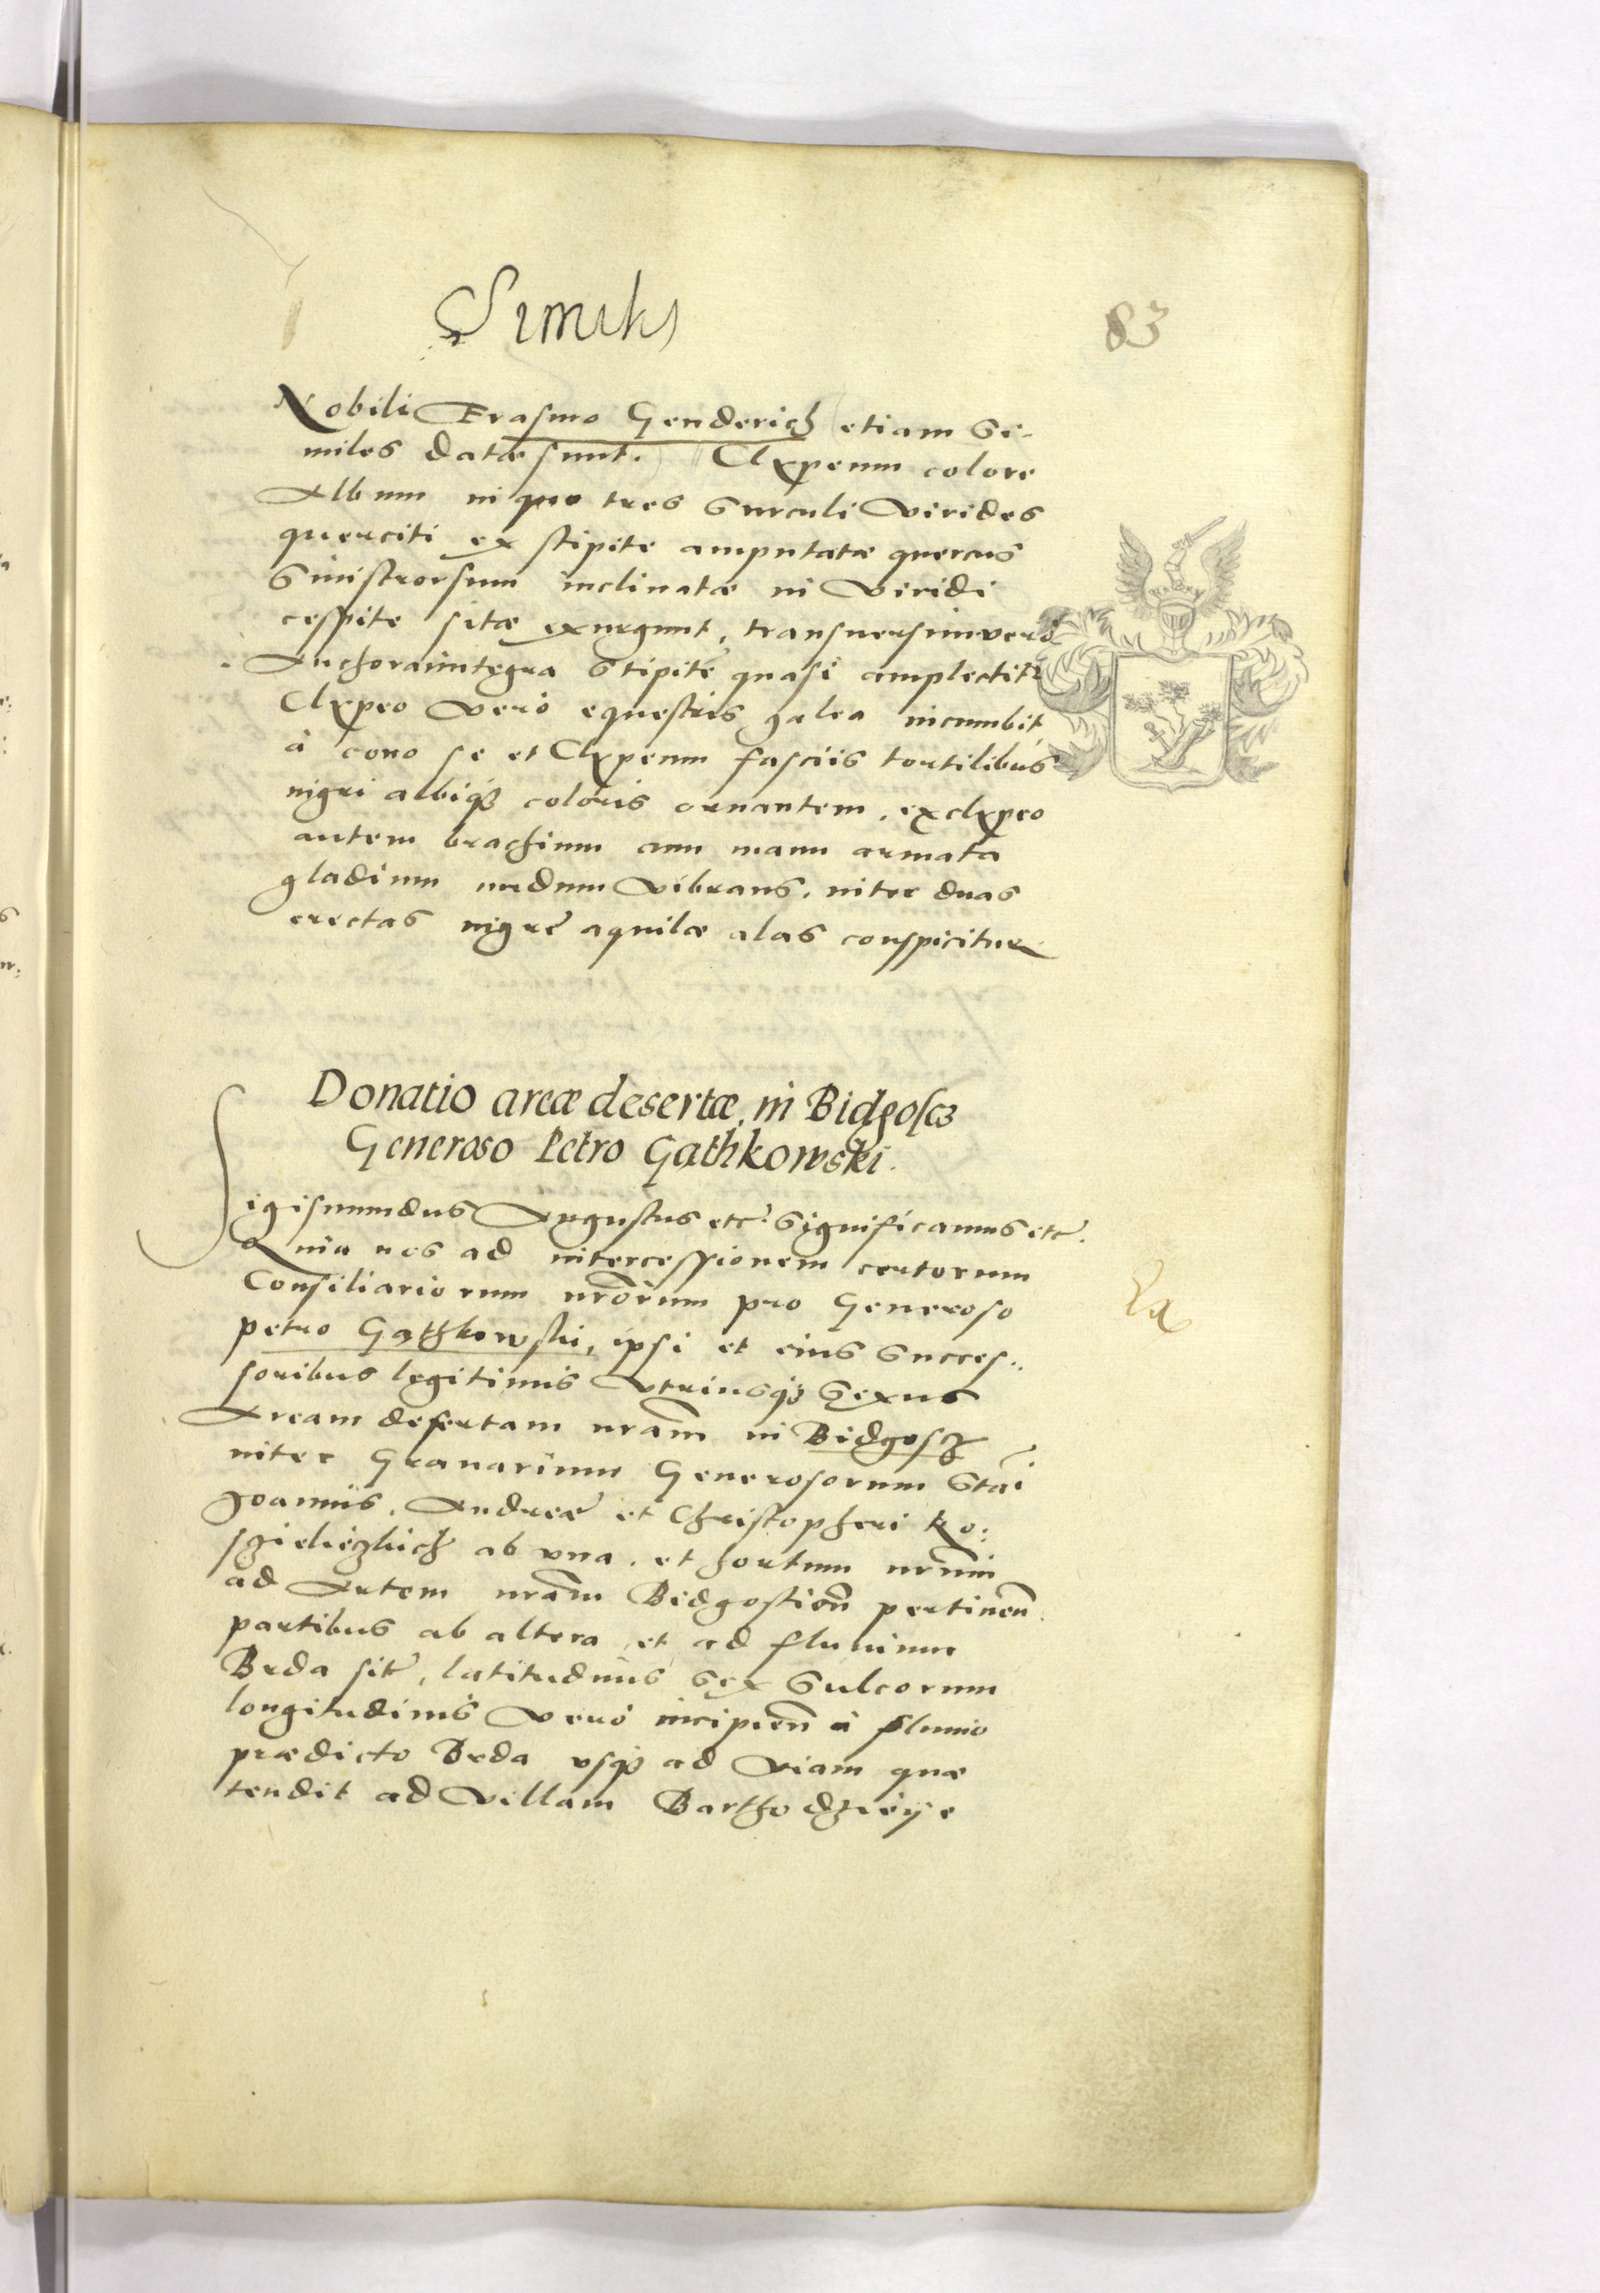 Similis
83
Nobili Erasmo Genderich etiam Si-
miles datæ sunt. Clypeum colore
Album in quo tres Surculi Virides
querciti ex stipite amputatæ quercus
Sinistrorsum inclinatæ in Viridi
cespite sitæ exurgunt, transuersim vero
Anchora integra Stipite quasi amplectit
Clypeo Vero equestris galea incumbit
à cono se et Clypeum fasciis tortilibus
nigri albiqȝ coloris ornantem, ex clypeo
autem brachium cum manu armata
gladium nudum Vibrans, inter duas
erectas nigre aquilæ alas conspicitur
Donatio areæ desertæ in Bidgoscz
Generoso Petro Gathkowski.
Sigismundus Augustus etc. Significamus etc.
Quia nos ad intercessionem certorum
Consiliariorum nrorum pro Generoso
petro Gathkowski, ipsi et eius Succes-
soribus legitimis Vtriusqȝ Sexus
Aream desertam nram in Bidgoscz
inter Granarium Generosorum Stai
Joannis, Andreæ et Christopheri Ko:
sczieliezkich ab vna, et hortum nrum
ad Artem nram Bidgostien pertinen
partibus ab altera, et ad fluuium
Brda sit, latitudinis Sex Sulcorum
longitudinis Vero incipien à fluuio
prædicto Brda vsqȝ ad Viam quæ
tendit ad Villam Barthodzieye